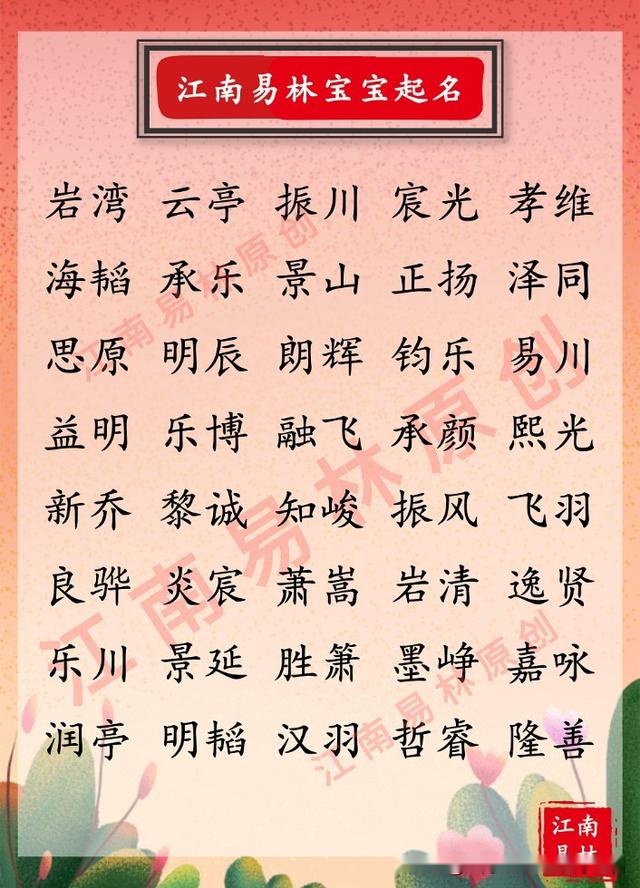 江南易林宝宝起名
岩湾 云亭 振川 宸光 孝维
海韬 承乐 景山 正扬 泽同
思原 明辰 朗辉 钧乐 易川
益明 乐博 融飞 承颜 熙光
新乔 黎诚 知峻 振风 飞羽
良骅 炎宸 萧嵩 岩清 逸贤
乐川 景延 胜箫 墨峥 嘉咏
润亭 明韬 汉羽 哲睿 隆善
江南易林原创
江南易林原创
江南易林原创
江南
易林